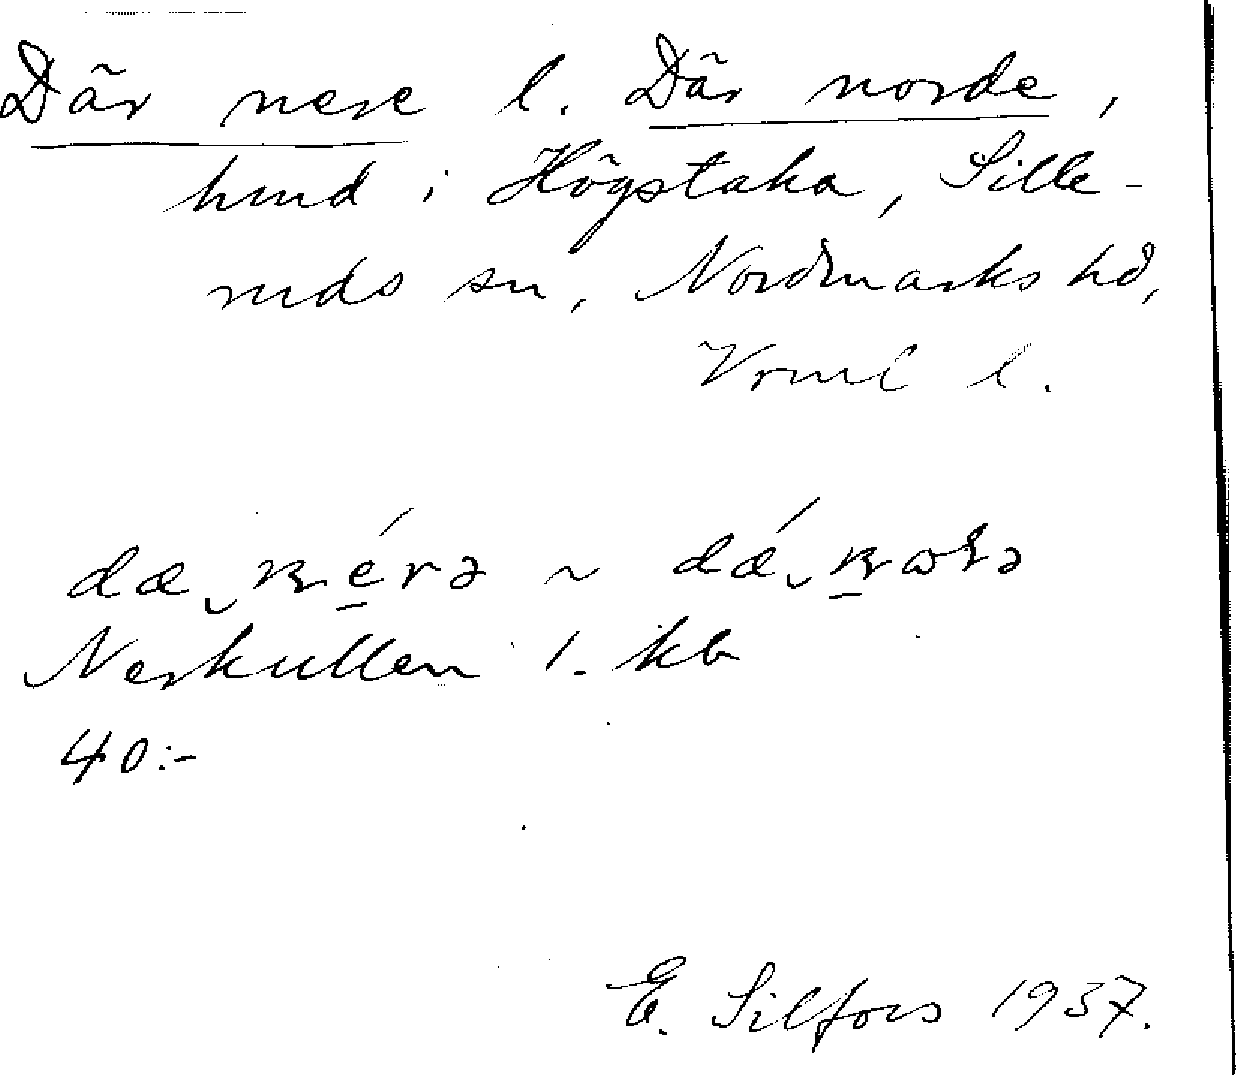 Där nere l. Där norde,
hmd i Högstaka, Sille-
ruds sn, Nordmarks hd,
Vrml l.
Nerkullen 1. kb
40:-
E. Silfors 1937.